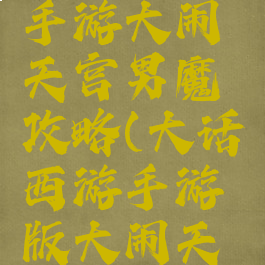 手游大闹
天宫男魔
攻略(大话
西游手游
版大闹天